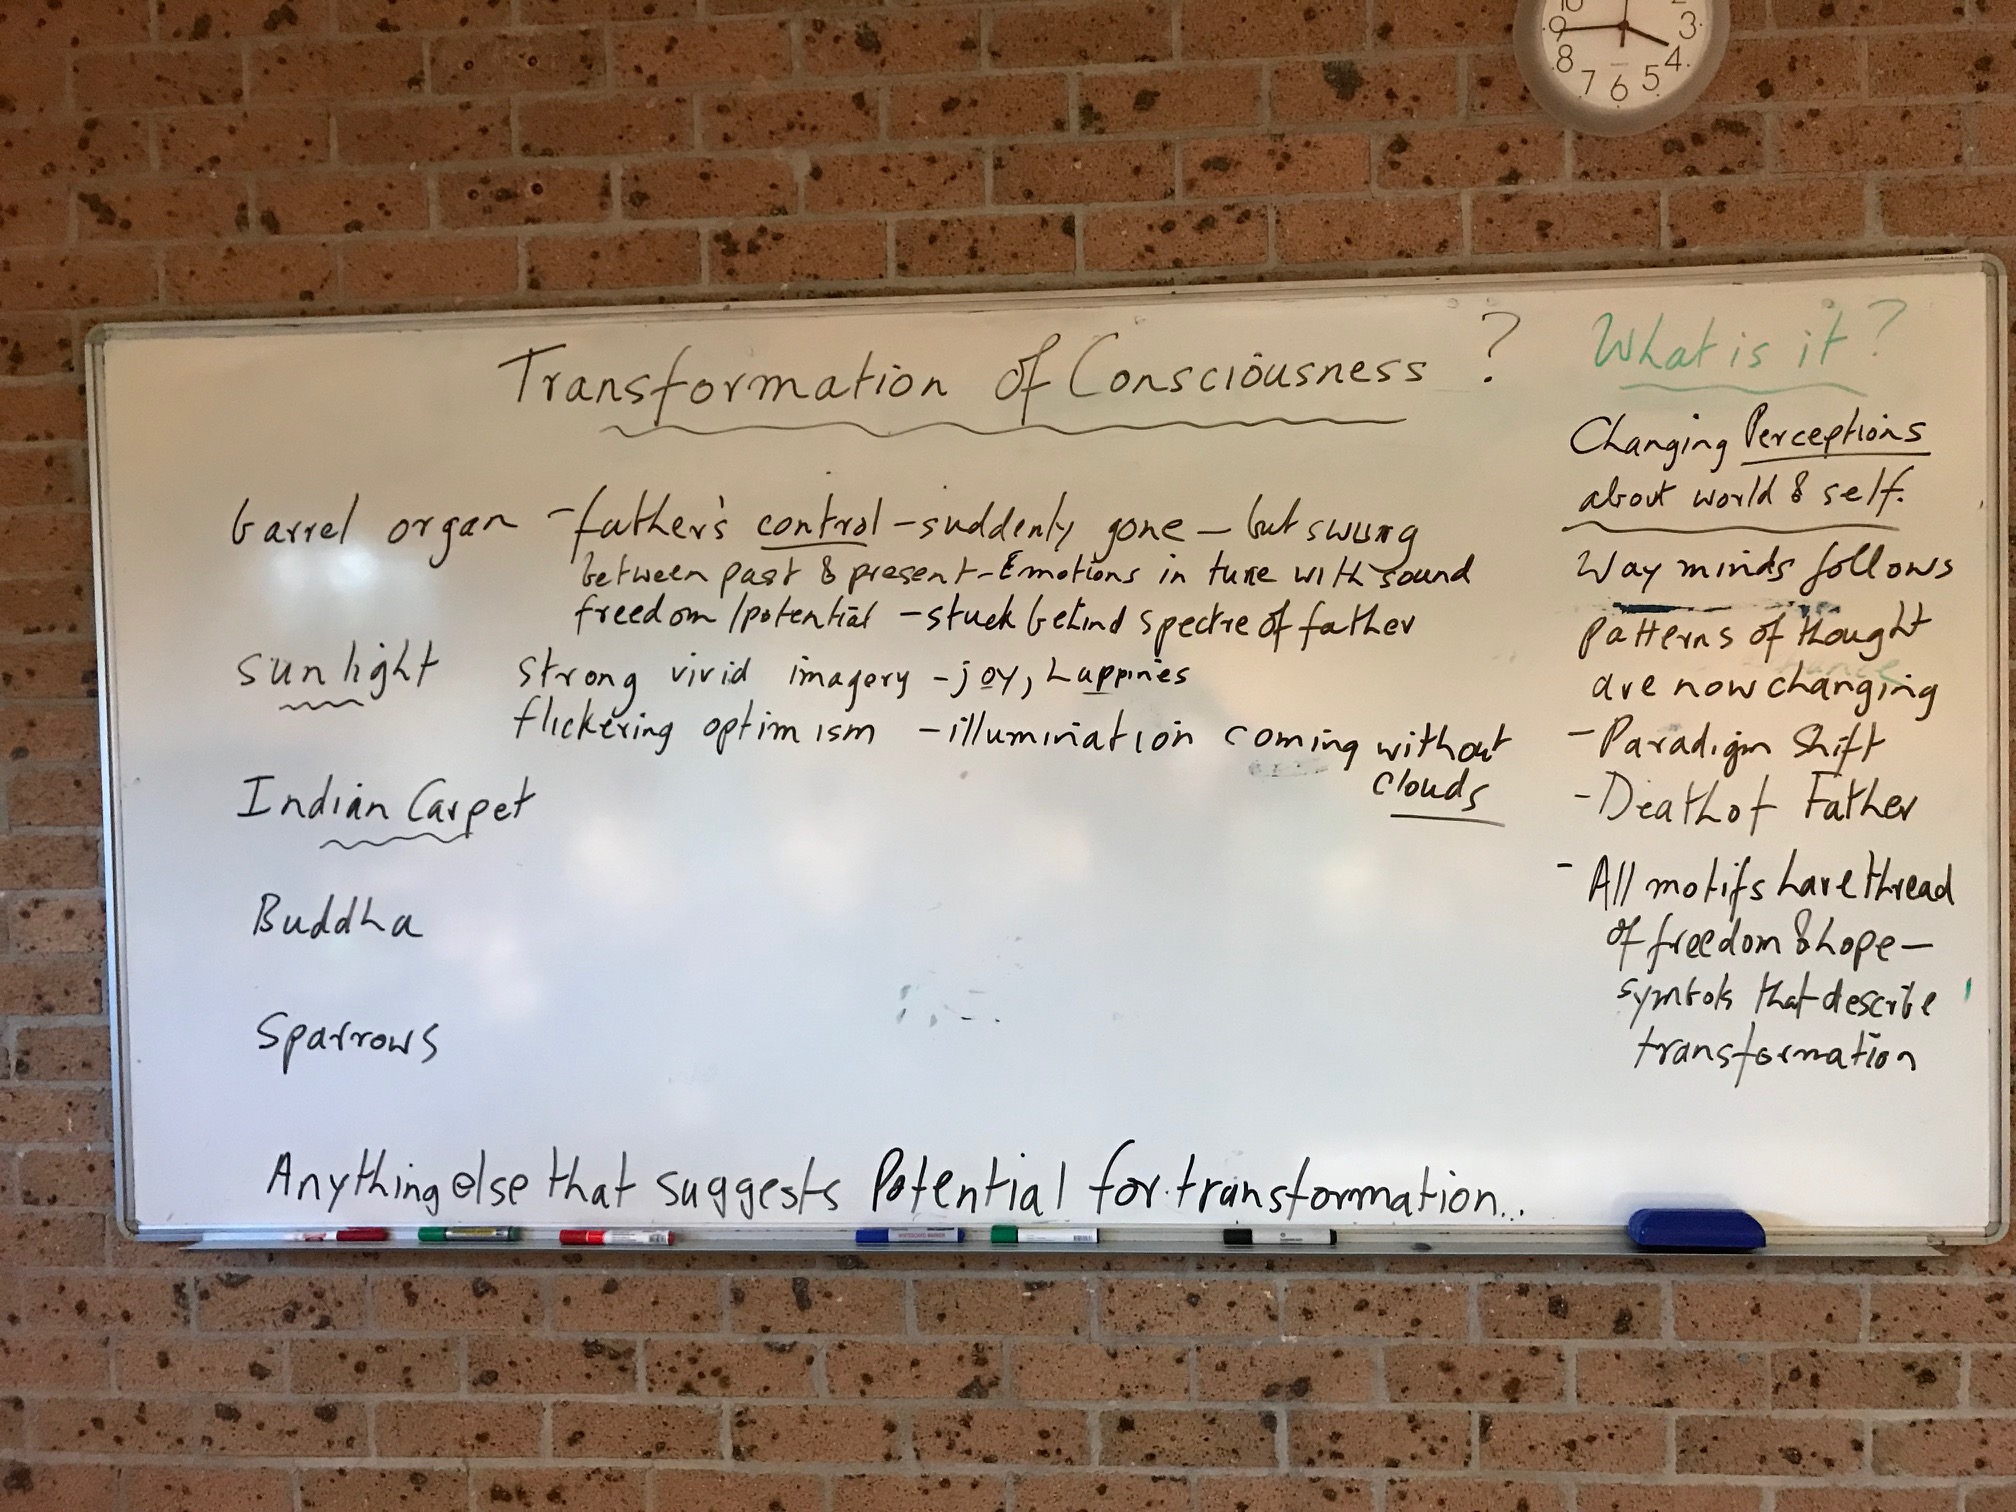 10 2
9 3
8 4
7 6 5
Transformation of Consciousness ?
barrel organ - father's control - suddenly gone - but swung
between past & present - Emotions in tune with sound
freedom / potential - stuck behind spectre of father
sunlight strong vivid imagery - joy, happines
flickering optimism - illumination coming without
clouds
Indian Carpet
Buddha
Sparrows
Anything else that suggests Potential for transformation...
What is it?
Changing Perceptions
about world & self.
Way minds follows
patterns of thought
are now changing
- Paradigm Shift
- Death of Father
- All motifs have thread
of freedom & hope -
symbols that describe
transformation